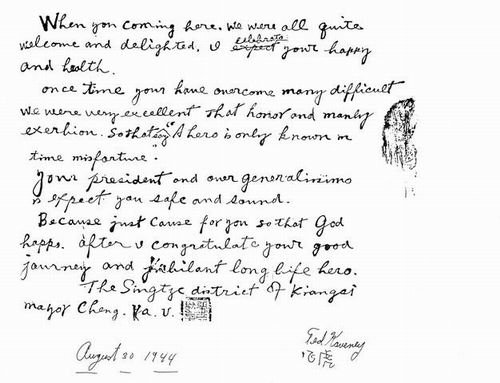 When you coming here. We were all quite
celebrate
welcome and delighted. I expect your happy
and health.
once time your have overcome many difficult
we were very excellent that honor and manly
exerbion. so that say A hero is only known in
time misfarture.
Your president and over generalissimo
is expect you safe and sound.
Because just cause for you so that God
happs. after I congratulate your good
journey and jubilant long life hero.
The Singtze district of Kiangsi
mayor Cheng. Ya. V.
Ted Kaveney
飞虎
August 30 1944